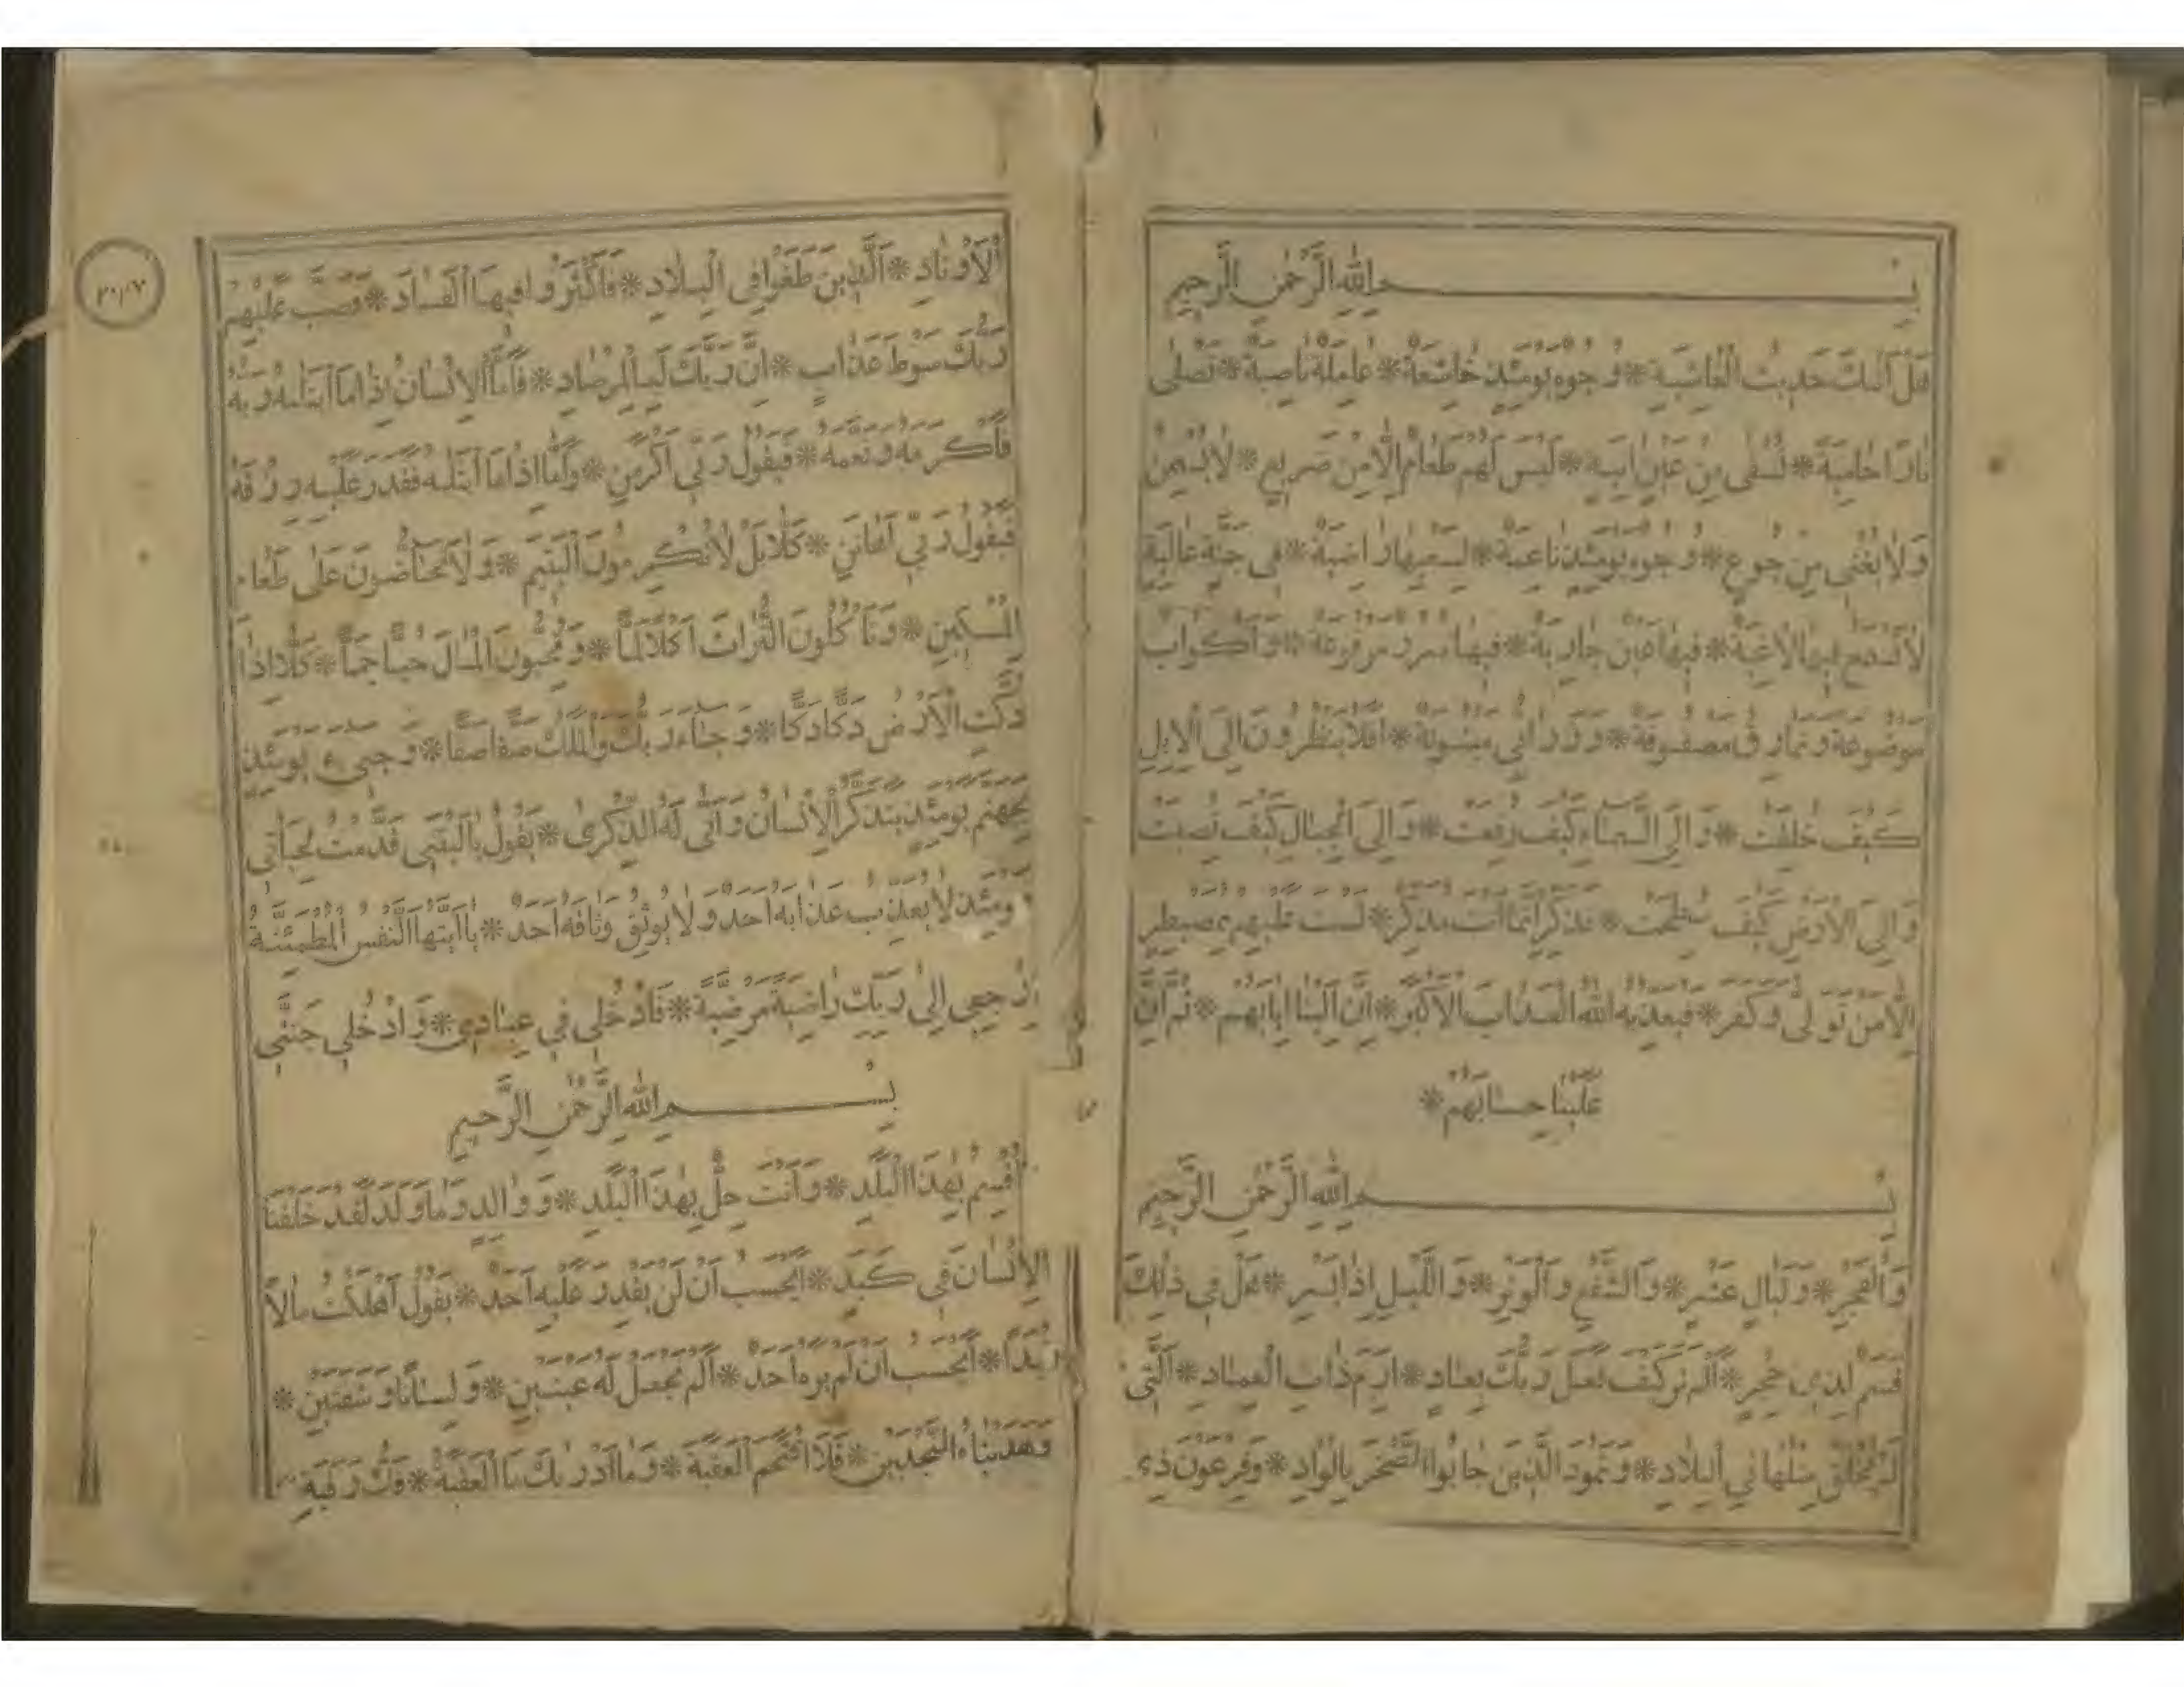 بِسْمِ اللهِ الرَّحْمٰنِ الرَّحِيمِ
هَلْ اَتٰيكَ حَدِيثُ الْغَاشِيَةِ * وُجُوهٌ يَوْمَئِذٍ خَاشِعَةٌ * عَامِلَةٌ نَاصِبَةٌ * تَصْلٰى
نَارًا حَامِيَةً * تُسْقٰى مِنْ عَيْنٍ اٰنِيَةٍ * لَيْسَ لَهُمْ طَعَامٌ اِلَّا مِنْ ضَرِيعٍ * لَا يُسْمِنُ
وَلَا يُغْنِى مِنْ جُوعٍ * وُجُوهٌ يَوْمَئِذٍ نَاعِمَةٌ * لِسَعْيِهَا رَاضِيَةٌ * فِى جَنَّةٍ عَالِيَةٍ
لَا تَسْمَعُ فِيهَا لَاغِيَةً * فِيهَا عَيْنٌ جَارِيَةٌ * فِيهَا سُرُرٌ مَرْفُوعَةٌ * وَاَكْوَابٌ
مَوْضُوعَةٌ وَنَمَارِقُ مَصْفُوفَةٌ * وَزَرَابِيُّ مَبْثُوثَةٌ * اَفَلَا يَنْظُرُونَ اِلَى الْاِبِلِ
كَيْفَ خُلِقَتْ * وَاِلَى السَّمَاءِ كَيْفَ رُفِعَتْ * وَاِلَى الْجِبَالِ كَيْفَ نُصِبَتْ
وَاِلَى الْاَرْضِ كَيْفَ سُطِحَتْ * فَذَكِّرْ اِنَّمَا اَنْتَ مُذَكِّرٌ * لَسْتَ عَلَيْهِمْ بِمُصَيْطِرٍ
اِلَّا مَنْ تَوَلّٰى وَكَفَرَ * فَيُعَذِّبُهُ اللهُ الْعَذَابَ الْاَكْبَرَ * اِنَّ اِلَيْنَا اِيَابَهُمْ * ثُمَّ اِنَّ
عَلَيْنَا حِسَابَهُمْ *
بِسْمِ اللهِ الرَّحْمٰنِ الرَّحِيمِ
وَالْفَجْرِ * وَلَيَالٍ عَشْرٍ * وَالشَّفْعِ وَالْوَتْرِ * وَاللَّيْلِ اِذَا يَسْرِ * هَلْ فِى ذٰلِكَ
قَسَمٌ لِذِى حِجْرٍ * اَلَمْ تَرَ كَيْفَ فَعَلَ رَبُّكَ بِعَادٍ * اِرَمَ ذَاتِ الْعِمَادِ * الَّتِى
لَمْ يُخْلَقْ مِثْلُهَا فِى الْبِلَادِ * وَثَمُودَ الَّذِينَ جَابُوا الصَّخْرَ بِالْوَادِ * وَفِرْعَوْنَ ذِى
الْاَوْتَادِ * اَلَّذِينَ طَغَوْا فِى الْبِلَادِ * فَاَكْثَرُوا فِيهَا الْفَسَادَ * فَصَبَّ عَلَيْهِمْ
رَبُّكَ سَوْطَ عَذَابٍ * اِنَّ رَبَّكَ لَبِالْمِرْصَادِ * فَاَمَّا الْاِنْسَانُ اِذَا مَا ابْتَلٰيهُ رَبُّهُ
فَاَكْرَمَهُ وَنَعَّمَهُ * فَيَقُولُ رَبِّى اَكْرَمَنِ * وَاَمَّا اِذَا مَا ابْتَلٰيهُ فَقَدَرَ عَلَيْهِ رِزْقَهُ
فَيَقُولُ رَبِّى اَهَانَنِ * كَلَّا بَلْ لَا تُكْرِمُونَ الْيَتِيمَ * وَلَا تَحَاضُّونَ عَلٰى طَعَامِ
الْمِسْكِينِ * وَتَأْكُلُونَ التُّرَاثَ اَكْلًا لَمًّا * وَتُحِبُّونَ الْمَالَ حُبًّا جَمًّا * كَلَّا اِذَا
دُكَّتِ الْاَرْضُ دَكًّا دَكًّا * وَجَاءَ رَبُّكَ وَالْمَلَكُ صَفًّا صَفًّا * وَجِىءَ يَوْمَئِذٍ
بِجَهَنَّمَ يَوْمَئِذٍ يَتَذَكَّرُ الْاِنْسَانُ وَاَنّٰى لَهُ الذِّكْرٰى * يَقُولُ يَالَيْتَنِى قَدَّمْتُ لِحَيَاتِى
فَيَوْمَئِذٍ لَا يُعَذِّبُ عَذَابَهُ اَحَدٌ وَلَا يُوثِقُ وَثَاقَهُ اَحَدٌ * يَااَيَّتُهَا النَّفْسُ الْمُطْمَئِنَّةُ
اِرْجِعِى اِلٰى رَبِّكِ رَاضِيَةً مَرْضِيَّةً * فَادْخُلِى فِى عِبَادِى * وَادْخُلِى جَنَّتِى
بِسْمِ اللهِ الرَّحْمٰنِ الرَّحِيمِ
اُقْسِمُ بِهٰذَا الْبَلَدِ * وَاَنْتَ حِلٌّ بِهٰذَا الْبَلَدِ * وَوَالِدٍ وَمَا وَلَدَ لَقَدْ خَلَقْنَا
الْاِنْسَانَ فِى كَبَدٍ * اَيَحْسَبُ اَنْ لَنْ يَقْدِرَ عَلَيْهِ اَحَدٌ * يَقُولُ اَهْلَكْتُ مَالًا
لُبَدًا * اَيَحْسَبُ اَنْ لَمْ يَرَهُ اَحَدٌ * اَلَمْ نَجْعَلْ لَهُ عَيْنَيْنِ * وَلِسَانًا وَشَفَتَيْنِ *
وَهَدَيْنَاهُ النَّجْدَيْنِ * فَلَا اقْتَحَمَ الْعَقَبَةَ * وَمَا اَدْرٰيكَ مَا الْعَقَبَةُ * فَكُّ رَقَبَةٍ